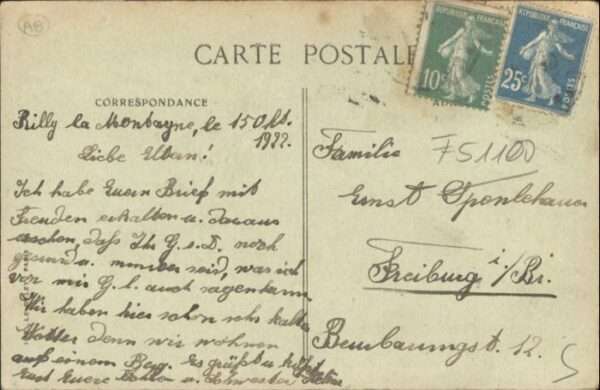 AB
CARTE POSTALE
RÉPUBLIQUE FRANÇAISE
10c
POSTES
RÉPUBLIQUE FRANÇAISE
25c
POSTES
CORRESPONDANCE
Rilly la Montagne, le 15 Okt.
1922.
Liebe Eltern!
Ich habe Euern Brief mit
Freuden erhalten u. daraus
ersehen, daß Ihr G. s. D. noch
gesund u. munter seid, was ich
von mir G. l. auch sagen kann.
Wir haben hier schon sehr kaltes
Wetter denn wir wohnen
auf einem Berg. Es grüßt u. küßt
Euch Euere Tochter u. Schwester
Familie
FS1100
Ernst
Freiburg i/Br.
12.